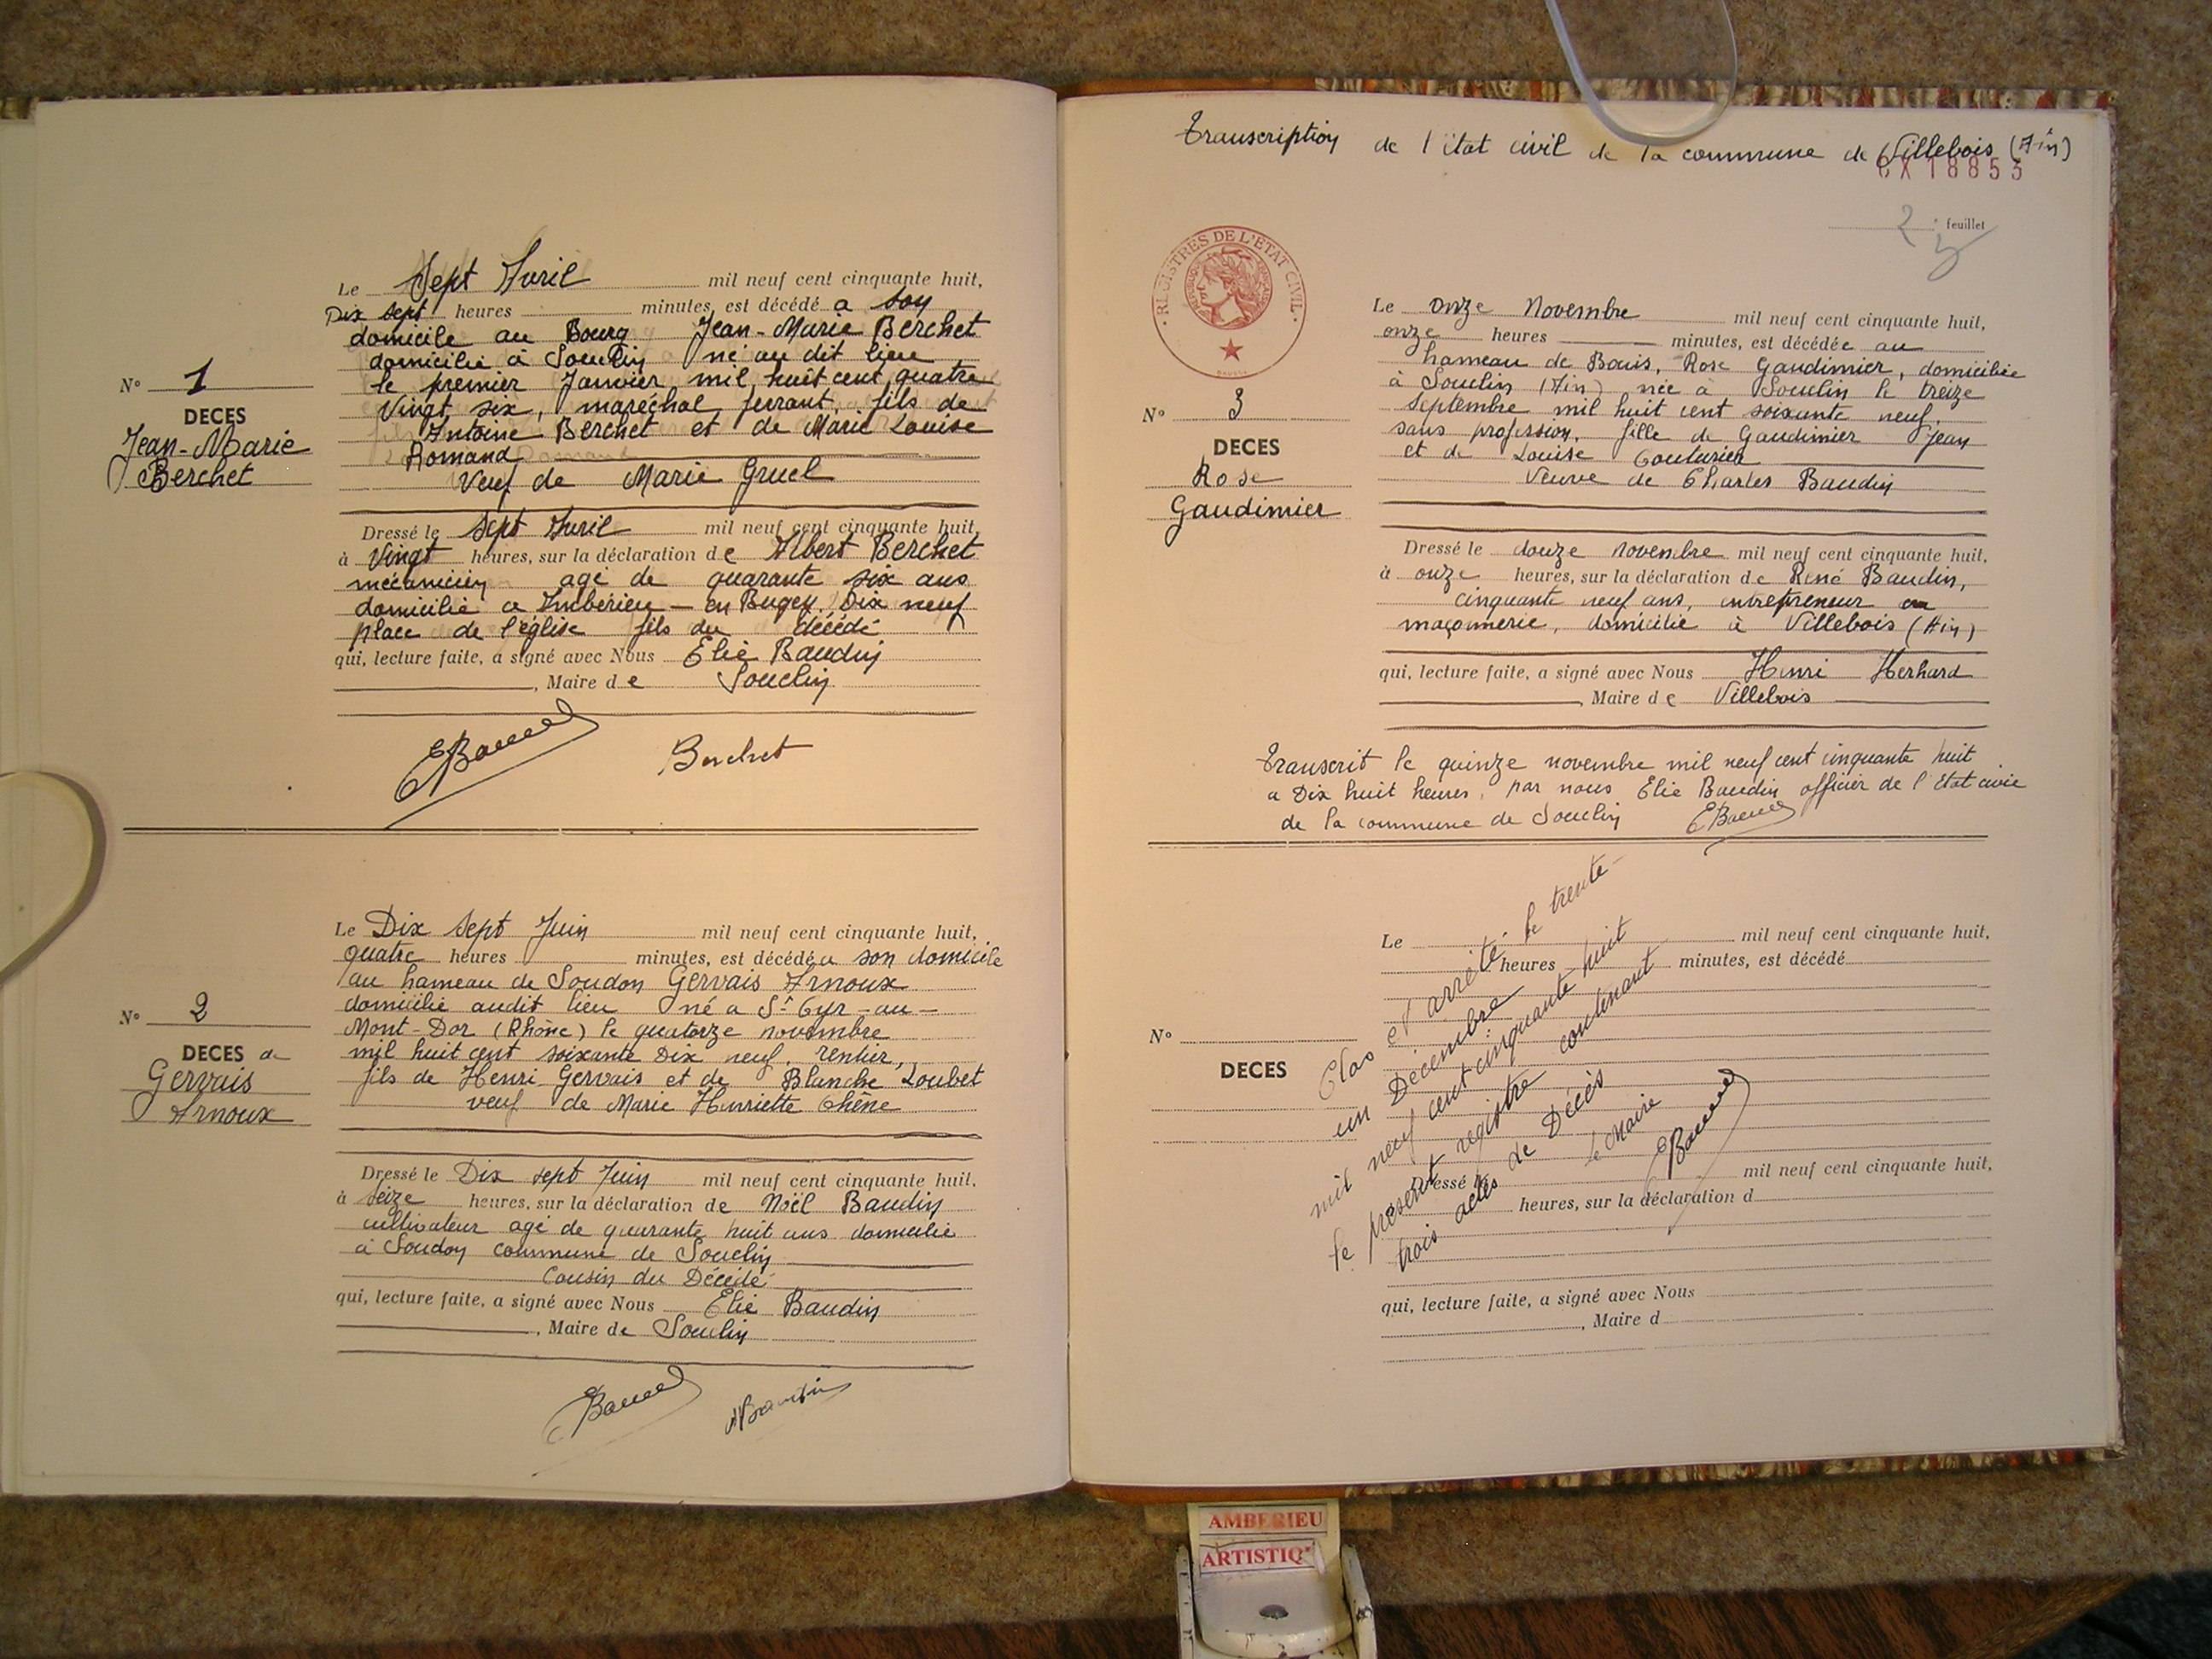 Le Sept Avril mil neuf cent cinquante huit,
Dix sept heures minutes, est décédé a son
domicile au Bourg Jean-Marie Berchet
domicilié à Souclin né au dit lieu
le premier Janvier mil huit cent quatre
Vingt six, maréchal ferrant, fils de
Antoine Berchet et de Marie Louise
Romand
Veuf de Marie Gruel
N° 1
DECES
Jean-Marie
Berchet
Dressé le Sept Avril mil neuf cent cinquante huit,
à Vingt heures, sur la déclaration de Albert Berchet
mécanicien agé de quarante six ans
domicilié a Ambérieu-en Bugey, Dix neuf
place de l'église fils du décédé
qui, lecture faite, a signé avec Nous Elie Baudin
, Maire de Souclin
EBaudin Berchet
Le Dix sept Juin mil neuf cent cinquante huit,
quatre heures minutes, est décédé a son domicile
au hameau de Soudon Gervais Arnoux
domicilié audit lieu né a St Cyr-au-
Mont-Dor (Rhône) le quatorze novembre
mil huit cent soixante Dix neuf, rentier,
fils de Henri Gervais et de Blanche Loubet
veuf de Marie Henriette Chêne
N° 2
DECES de
Gervais
Arnoux
Dressé le Dix sept Juin mil neuf cent cinquante huit,
à seize heures, sur la déclaration de Noël Baudin
cultivateur agé de quarante huit ans domicilié
à Soudon commune de Souclin
Cousin du Décédé
qui, lecture faite, a signé avec Nous Elie Baudin
, Maire de Souclin
EBaudin NBaudin
Transcription de l'état civil de la commune de Villebois (Ain)
CX18853
2e feuillet
REGISTRES DE L'ETAT CIVIL
Le onze Novembre mil neuf cent cinquante huit,
onze heures minutes, est décédée au
hameau de Bouis, Rose Gaudimier, domiciliée
à Souclin (Ain) née à Souclin le treize
Septembre mil huit cent soixante neuf,
sans profession, fille de Gaudimier Jean
et de Louise Couturier
Veuve de Charles Baudin
N° 3
DECES
Rose
Gaudimier
Dressé le douze novembre mil neuf cent cinquante huit,
à onze heures, sur la déclaration de René Baudin,
cinquante neuf ans, entrepreneur en
maçonnerie, domicilié à Villebois (Ain)
qui, lecture faite, a signé avec Nous Henri Herhard
, Maire de Villebois
Transcrit le quinze novembre mil neuf cent cinquante huit
a Dix huit heures, par nous Elie Baudin officier de l'état civil
de la commune de Souclin EBaudin
Le mil neuf cent cinquante huit,
heures minutes, est décédé
N°
DECES
Clos et arrêté le trente
un Décembre
mil neuf cent cinquante huit
le présent registre contenant
trois actes de Décès
le Maire
EBaudin
Dressé le mil neuf cent cinquante huit,
heures, sur la déclaration d
qui, lecture faite, a signé avec Nous
, Maire d
AMBERIEU
ARTISTIQ